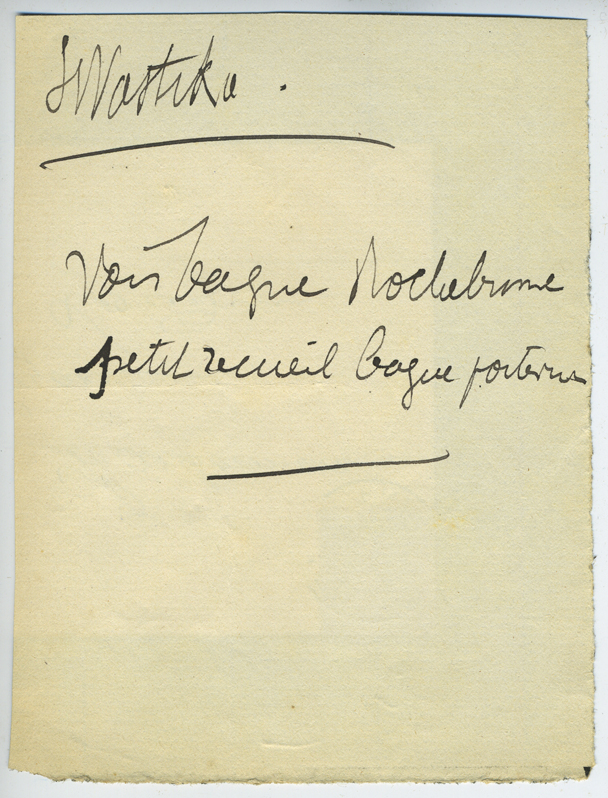 SWastika .
Voir bague Rochebrune
petit recueil bague